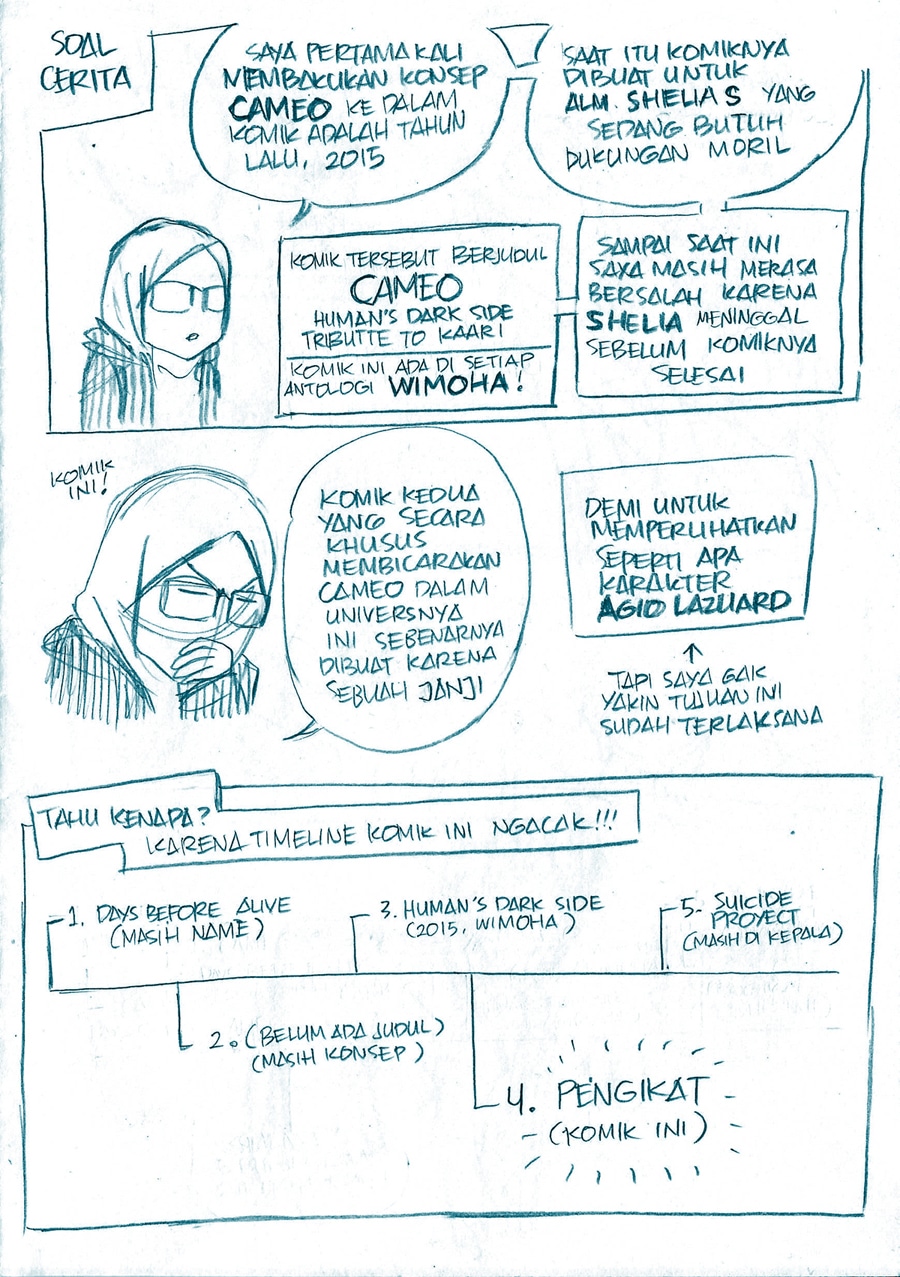 SOAL
CERITA
SAYA PERTAMA KALI
MEMBAKUKAN KONSEP
CAMEO KE DALAM
KOMIK ADALAH TAHUN
LALU, 2015
SAAT ITU KOMIKNYA
DIBUAT UNTUK
ALM. SHELIA S YANG
SEDANG BUTUH
DUKUNGAN MORIL
KOMIK TERSEBUT BERJUDUL
CAMEO
HUMAN'S DARK SIDE
TRIBUTTE TO KAARI
KOMIK INI ADA DI SETIAP
ANTOLOGI WIMOHA!
SAMPAI SAAT INI
SAYA MASIH MERASA
BERSALAH KARENA
SHELIA MENINGGAL
SEBELUM KOMIKNYA
SELESAI
KOMIK
INI!
KOMIK KEDUA
YANG SECARA
KHUSUS
MEMBICARAKAN
CAMEO DALAM
UNIVERSNYA
INI SEBENARNYA
DIBUAT KARENA
SEBUAH JANJI
DEMI UNTUK
MEMPERLIHATKAN
SEPERTI APA
KARAKTER
AGIO LAZUARD
TAPI SAYA GAK
YAKIN TUJUAN INI
SUDAH TERLAKSANA
TAHU KENAPA?
KARENA TIMELINE KOMIK INI NGACAK!!!
1. DAYS BEFORE ALIVE
(MASIH NAME)
3. HUMAN'S DARK SIDE
(2015, WIMOHA)
5. SUICIDE
PROYECT
(MASIH DI KEPALA)
2. (BELUM ADA JUDUL)
(MASIH KONSEP)
4. PENGIKAT
(KOMIK INI)